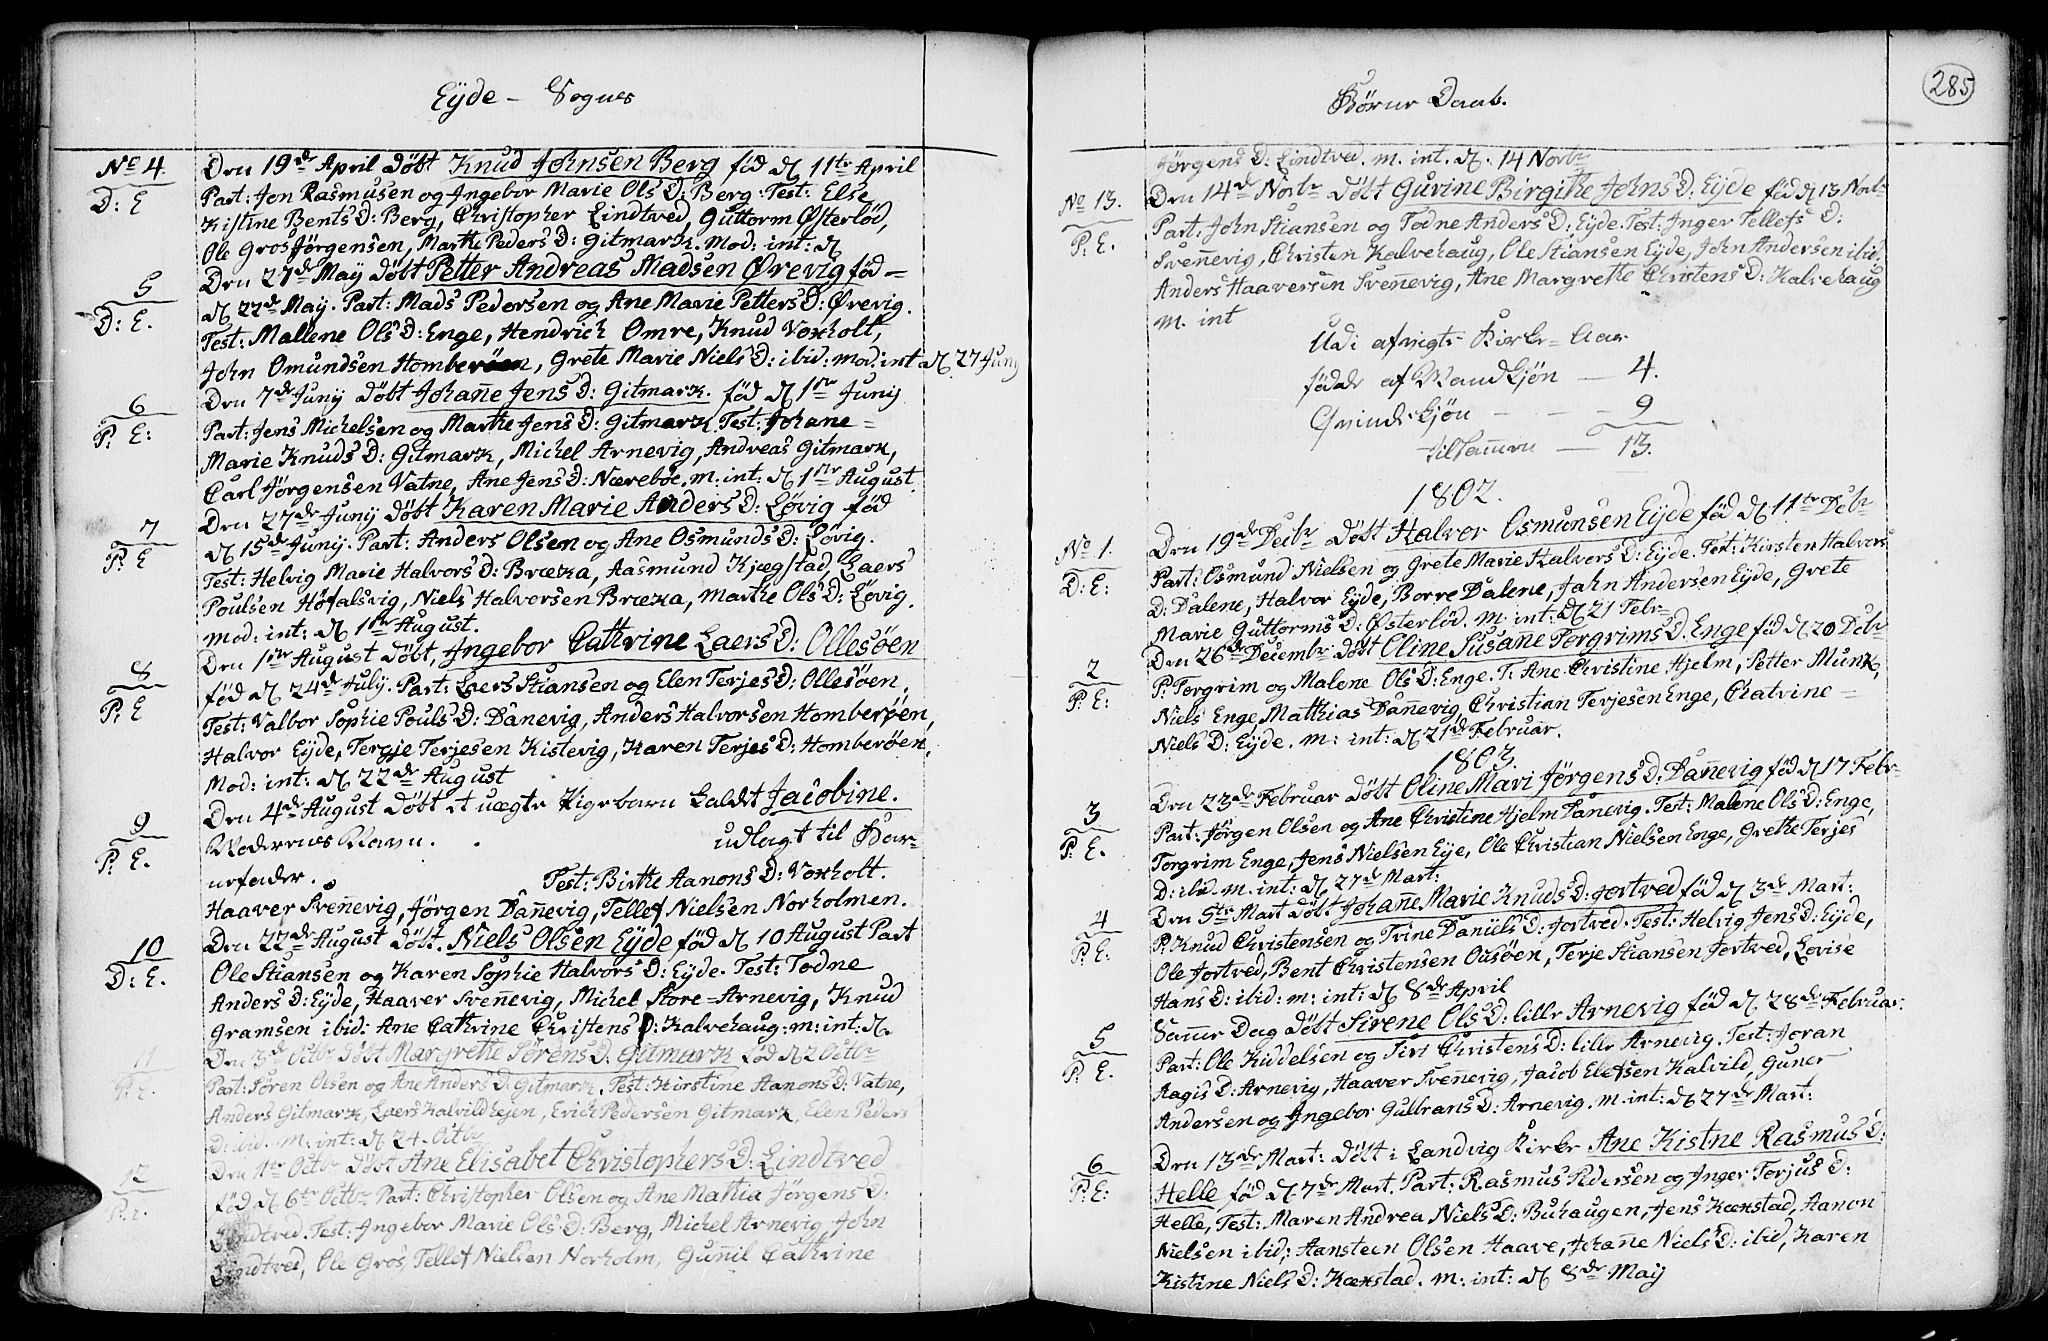 Eyde - Sogns
No 4
Den 19de April døbt Knud Johnsen Berg fød d. 11te April
D: E
Part: Jon Rasmusen og Ingebor Marie Ols D: Berg. Test: Else
Kistine Bents D: Berg, Christopher Lindtved, Guttorm Østerlød,
Ole Gros Jørgensen, Marthe Peders D: Gitmark. Mod: int: d.
5
Den 27de May døbt Petter Andreas Madsen Ørevig fød =
D: E.
d. 22de May. Part: Mads Pedersen og Ane Marie Petters D: Ørevig.
Test: Mallene Ols D: Enge, Hendrich Omre, Knud Voxholt,
John Omundsen Homberøen, Grete Marie Niels D: ibid: mod: int d. 27 Juny
6
Den 7de Juny døbt Johañe Jens D: Gitmark. fød d. 1ste Juny
P: E:
Part: Jens Michelsen og Marthe Jens D: Gitmark. Test: Johane =
Marie Knuds D: Gitmark, Michel Arnevig, Andreas Gitmark,
Carl Jørgensen Vatne, Ane Jens D: Nærebøe. m: int: d. 1ste August.
7
Den 27de Juny døbt Karen Marie Anders D: Løvig fød
P: E
d. 15de Juny. Part: Anders Olsen og Ane Osmunds D: Løvig.
Test: Helvig Marie Halvors D: Bræka, Aasmund Kjægstad, Laers
Poulsen Høfalsvig, Niels Halvorsen Bræka, Marthe Ols D: Løvig.
Mod: int: d. 1ste August.
8
Den 1ste August døbt, Ingebor Cathrine Laers D: Ollesøen
P: E
fød d. 24de July. Part: Laers Stiansen og Elen Terjes D: Ollesøen.
Test: Valbor Sophie Pouls D: Dañevig, Anders Halvorsen Homberøen,
Halvor Eyde, Tergje Terjesen Kistevig, Karen Terjes D: Homberøen.
Mod: int: d. 22de August
9
Den 4de August døbt et uægte Pigebarn kaldet Jacobine.
P: E.
Moderens Navn. . udlagt til Bar-
nefader. Test: Birthe Aanons D: Voxholt.
Haaver Sveñevig, Jørgen Dañevig, Tellef Nielsen Norholmen.
10
Den 22de August døbt. Niels Olsen Eyde fød d. 10 August Part
D: E.
Ole Stiansen og Karen Sophie Halvors D: Eyde. Test: Todne
Anders D: Eyde, Haaver Sveñevig, Michel Store = Arnevig, Knud
Gramsen ibid: Ane Cathrine Christens D: Kalvehaug: m: int: d.
11
Den 3de Octbr døbt Margrethe Sørens D. Gitmark fød d. 2 Octbr
P: E.
Part: Søren Olsen og Ane Anders D: Gitmark, Test: Kirstine Aanons D: Vatne,
Anders Gitmark, Laers Kalvildhejen, Erich Pedersen Gitmark, Elen Peders
D: ibid. m: int: d. 24. Octbr
12
Den 11te Octbr døbt Ane Elisabet Christophers D: Lindtved
P: E.
fød d. 6te Octbr Part: Christopher Olsen og Ane Mathia Jørgens D:
Lindtved. Test: Ingebor Marie Ols D: Berg, Michel Arnevig, John
Lindtved, Ole Gros, Tellef Nielsen Norholm, Guñil Cathrine
Børne Daab.
285
Jørgens D: Lindtved. m. int. d. 14 Novbr
No 13.
Den 14de Novbr døbt Gurine Birgithe Johns D: Eyde fød d. 13 Novbr
P: E.
Part: John Stiansen og Todne Anders D: Eyde. Test: Inger Tellefs D:
Sveñevig, Christen Kalvehaug, Ole Stiansen Eyde, John Andersen ibid.
Anders Haaversen Sveñevig, Ane Margrethe Christens D: Kalvehaug
m. int
Udi afvigte Kirke = Aar
fødde af Mandkjøn — 4.
Qvindekjøn - - - 9
tilsamen — 13.
1802.
No 1.
Den 19de Decbr døbt Halvor Osmunsen Eyde fød d. 11te Decbr
D: E:
Part: Osmund Nielsen og Grete Marie Halvors D: Eyde. Test: Kirsten Halvors
D: Dalene, Halvor Eyde, Borre Dalene, John Andersen Eyde, Grete
Marie Guttorms D: Østerlød. m: int: d. 21 Febr
2
Den 26de Decembr døbt Oline Susañe Torgrims D. Enge fød d. 20 Decbr
P: E:
P: Torgrim og Malene Ols D: Enge. T: Ane Christine Hjelm, Petter Munk,
Niels Enge, Matthias Dañevig, Christian Terjesen Enge, Chatrine =
Niels D: Eyde. m: int: d. 21de Februar.
1803.
3
Den 23de Februar døbt Oline Mari Jørgens D: Dañevig fød d. 17 Febr-
P: E.
Part: Jørgen Olsen og Ane Christine Hjelm Dañevig. Test: Malene Ols D: Enge,
Torgrim Enge, Jens Nielsen Eye, Ole Christian Nielsen Enge, Grethe Terjes
D: ibid. m. int: d. 27de Mart:
4
Den 5te Mart døbt Johañe Marie Knuds D: Jortved fød d. 3de Mart:
P: E:
P: Knud Christensen og Trine Daniels D: Jortved. Test: Helvig Jens D: Eyde,
Ole Jortved, Bent Christensen Ousøen, Terje Stiansen Jortved, Lovise
Hans D: ibid: m: int: d. 8de April
5
Samme Dag døbt Sirene Ols D: lille Arnevig fød d. 28de Februar.
P: E.
Part: Ole Kiddelsen og Siri Christens D: lille Arnevig. Test: Joran
Aagis D: Arnevig, Haaver Sveñevig, Jacob Elefsen Kalvild, Guner
Andersen og Ingebor Gulbrans D: Arnevig. m. int: d. 27de Mart:
6
Den 13de Mart: døbt i Landvig Kirke Ane Kistne Rasmus D:
P: E:
Helle fød d. 7de Mart. Part: Rasmus Pedersen og Inger Torjus D:
Helle, Test: Maren Andrea Niels D: Buhaugen, Jens Kæxstad, Aanon
Nielsen ibid; Aansteen Olsen Haave, Johañe Niels D: ibid, Karen
Kistine Niels D: Kæxstad. m: int: d. 8de May